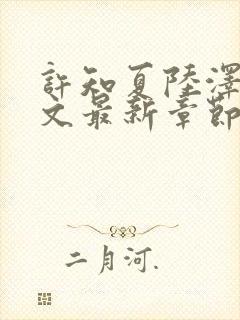 許知夏陸澤
文最新章節
二月河.